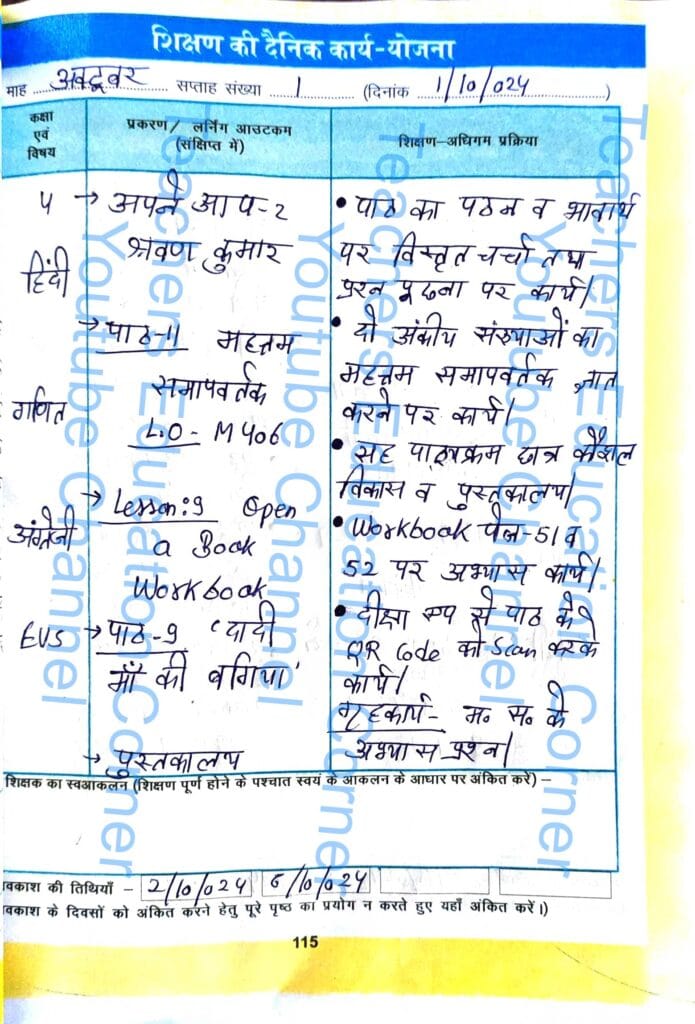 शिक्षण की दैनिक कार्य-योजना
माह अक्टूबर सप्ताह संख्या 1 (दिनांक 1/10/024)
कक्षा एवं विषय
प्रकरण/ लर्निंग आउटकम (संक्षिप्त में)
शिक्षण-अधिगम प्रक्रिया
५ → अपने आप-2
श्रवण कुमार
हिंदी
• पाठ का पठन व भावार्थ
पर विस्तृत चर्चा तथा
प्रश्न पूछना पर कार्य।
→ पाठ-11 महत्तम
समापवर्तक
गणित
L.O- M406
• दो अंकीय संख्याओं का
महत्तम समापवर्तक ज्ञात
करने पर कार्य।
• सह पाठ्यक्रम छात्र कौशल
विकास व पुस्तकालय।
→ Lesson:9 Open
अंग्रेजी
a Book
Workbook
• Workbook पेज-51 व
52 पर अभ्यास कार्य।
EVS → पाठ-9 'दादी
माँ की बगिया'
• दीक्षा एप से पाठ के
QR Code को Scan करके
कार्य।
गृहकार्य- म. स. के
अभ्यास प्रश्न।
→ पुस्तकालय
शिक्षक का स्वआकलन (शिक्षण पूर्ण होने के पश्चात स्वयं के आकलन के आधार पर अंकित करें) –
वकाश की तिथियाँ – 2/10/024 6/10/024
वकाश के दिवसों को अंकित करने हेतु पूरे पृष्ठ का प्रयोग न करते हुए यहाँ अंकित करें।)
115
Teachers Education Corner
Youtube Channel
Teachers Education Corner
Youtube Channel
Teachers Education Corner
Youtube Channel